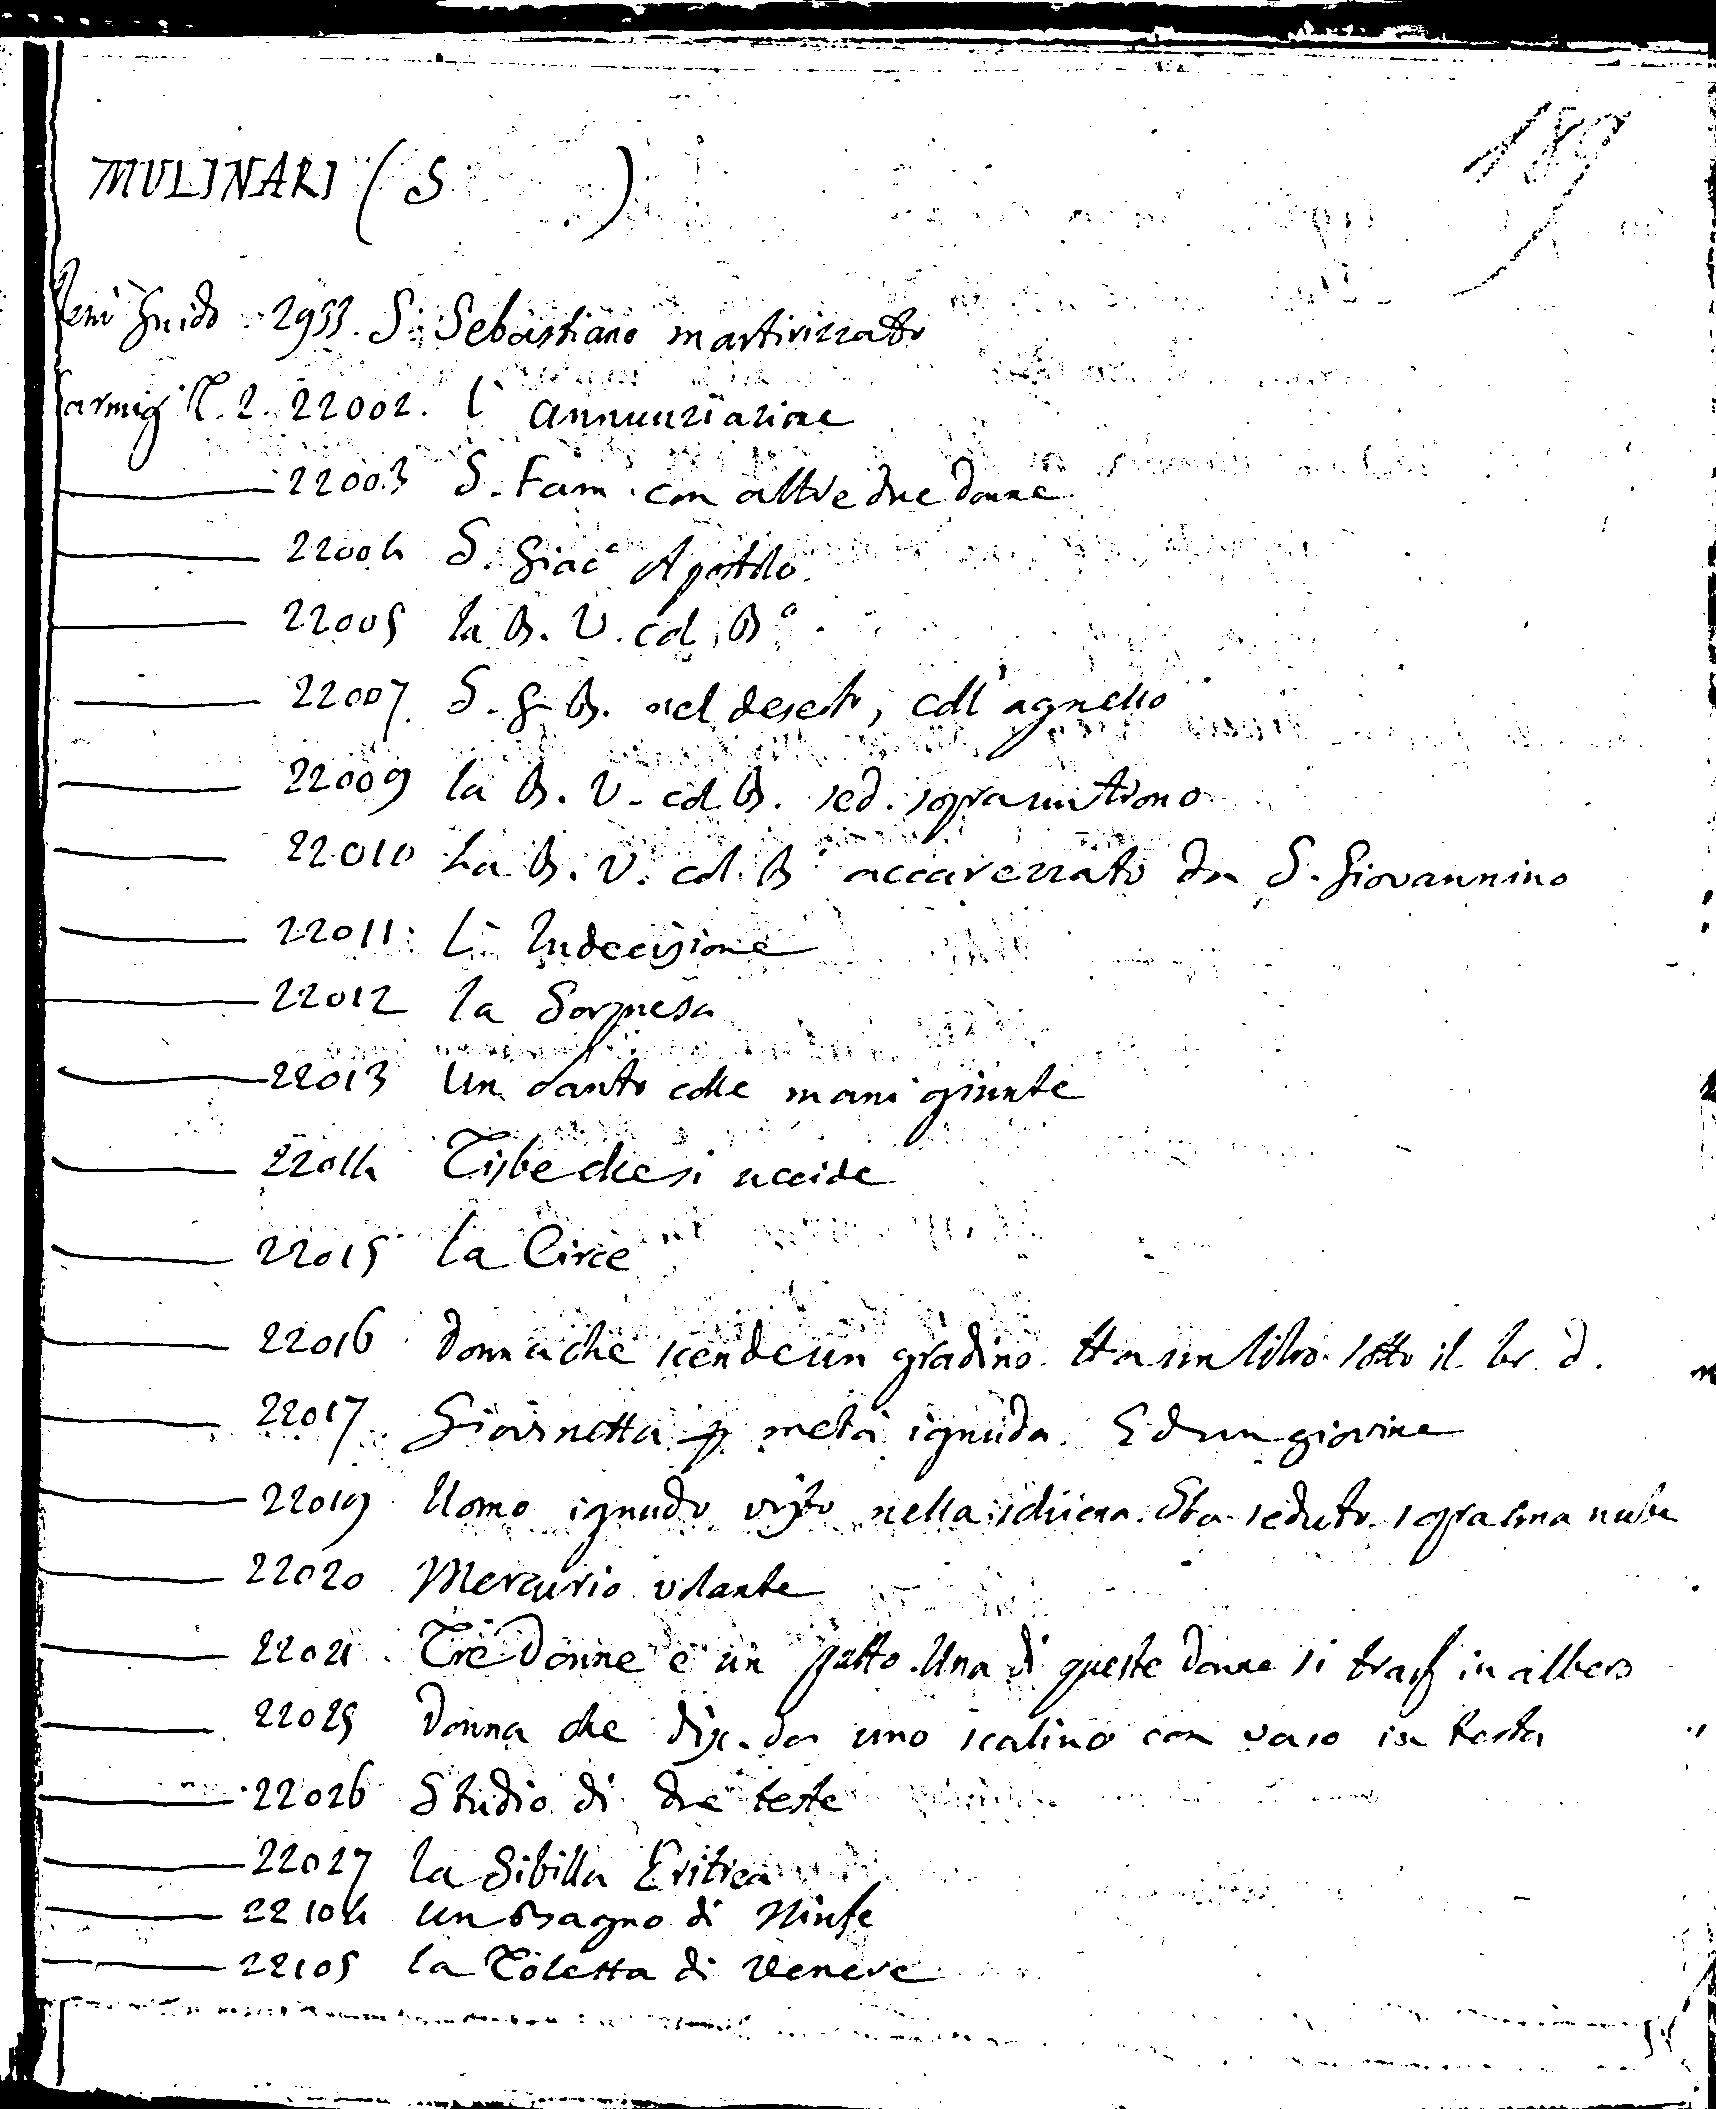 189
MULINARI ( S )
Reni Guido . 2953. S. Sebastiano martirizzato
Parmig. T. 2. 22002. L' annunziazione
22003 S. Fam. con altre due donne
22004 S. Giac° Apostolo
22005 la B. V. col B°
22007 S. G. B. nel deserto, coll' agnello
22009 la B. V. col B. sed. sopra un trono
22010 La B. V. col B° accarezzato da S. Giovannino
22011 L' Indecisione
22012 la Sorpresa
22013 Un Santo colle mani giunte
22014 Tisbe che si uccide
22015 La Circe
22016 Donna che scende un gradino. Ha un libro sotto il br. d.
22017 Giovinetta p metà ignuda. Ed un giovine
22019 Uomo ignudo visto nella schiena. Sta seduto sopra una nube
22020 Mercurio volante
22021 Tre Donne e un putto. Una di queste donne si trasf. in albero
22025 Donna che disc. da uno scalino con vaso in testa
22026 Studio di due teste
22027 la Sibilla Eritrea
22104 un Bagno di Ninfe
22105 la Toletta di Venere